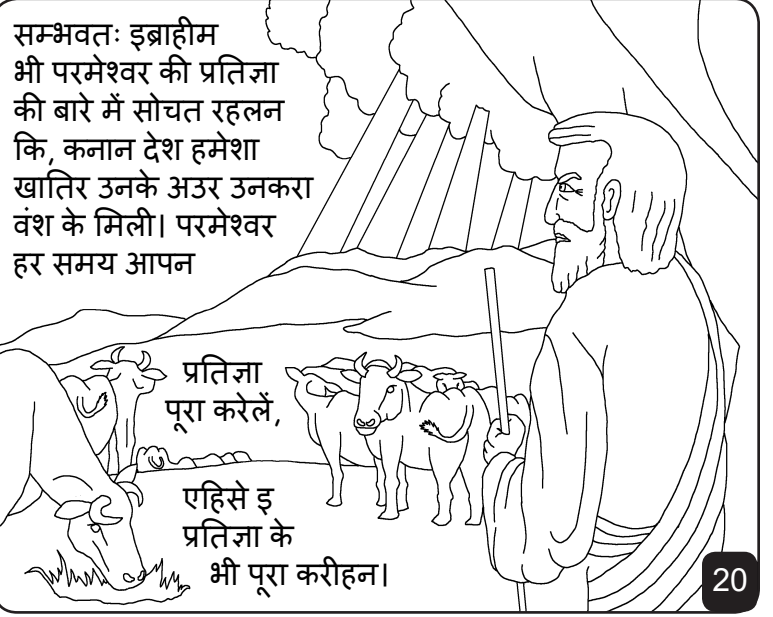 सम्भवतः इब्राहीम
भी परमेश्वर की प्रतिज्ञा
की बारे में सोचत रहलन
कि, कनान देश हमेशा
खातिर उनके अउर उनकरा
वंश के मिली। परमेश्वर
हर समय आपन
प्रतिज्ञा
पूरा करेलें,
एहिसे इ
प्रतिज्ञा के
भी पूरा करीहन।
20